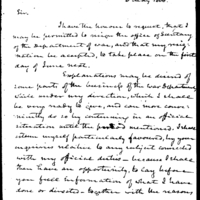 Sir.
I have the honour to request, that I
may be permitted to resign the office of Secretary
of the Department of war, and that my resig-
nation be accepted, to take place on the first
day of June next.
Explanations may be desired of
some parts of the business of the Department
under my direction, which I shall
be very ready to give, and can more conve-
niently do so by continuing in an official
situation until the period mentioned, I shall
esteem myself particularly favoured, by you
enquiries relative to any subject connected
with my official duties — because I shall
then have an opportunity, to lay before
you full information of what I have
done or directed together with the reasons